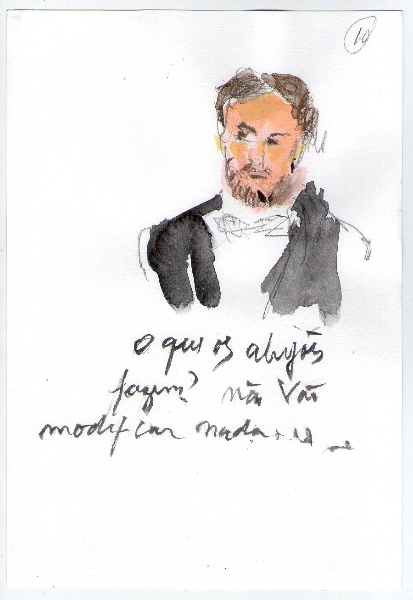 10
o que os
fazem? não Vão
modificar nada...